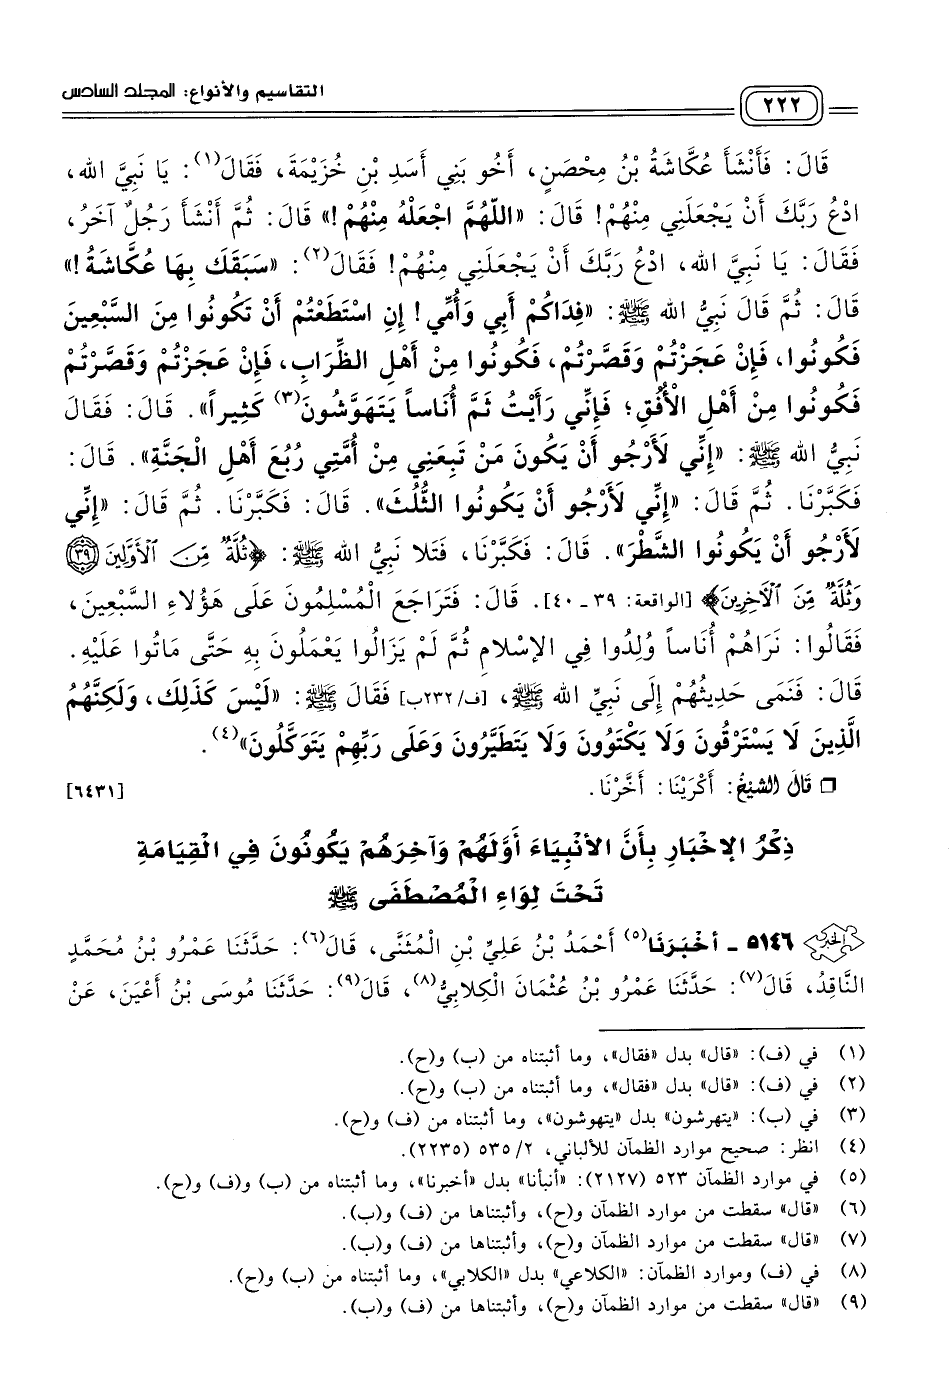 التقاسيم والأنواع: المجلد السادس
٢٢٢
قَالَ: فَأَنْشَأَ عُكَّاشَةُ بْنُ مِحْصَنٍ، أَخُو بَنِي أَسَدِ بْنِ خُزَيْمَةَ، فَقَالَ(١): يَا نَبِيَّ الله،
ادْعُ رَبَّكَ أَنْ يَجْعَلَنِي مِنْهُمْ! قَالَ: «اللَّهُمَّ اجْعَلْهُ مِنْهُمْ!» قَالَ: ثُمَّ أَنْشَأَ رَجُلٌ آخَرُ،
فَقَالَ: يَا نَبِيَّ الله، ادْعُ رَبَّكَ أَنْ يَجْعَلَنِي مِنْهُمْ! فَقَالَ(٢): «سَبَقَكَ بِهَا عُكَّاشَةُ!»
قَالَ: ثُمَّ قَالَ نَبِيُّ الله ﷺ: «فِدَاكُمْ أَبِي وَأُمِّي! إِنِ اسْتَطَعْتُمْ أَنْ تَكُونُوا مِنَ السَّبْعِينَ
فَكُونُوا، فَإِنْ عَجَزْتُمْ وَقَصَّرْتُمْ، فَكُونُوا مِنْ أَهْلِ الظِّرَابِ، فَإِنْ عَجَزْتُمْ وَقَصَّرْتُمْ
فَكُونُوا مِنْ أَهْلِ الْأُفُقِ؛ فَإِنِّي رَأَيْتُ ثَمَّ أُنَاساً يَتَهَوَّشُونَ(٣) كَثِيراً». قَالَ: فَقَالَ
نَبِيُّ الله ﷺ: «إِنِّي لَأَرْجُو أَنْ يَكُونَ مَنْ تَبِعَنِي مِنْ أُمَّتِي رُبُعَ أَهْلِ الْجَنَّةِ». قَالَ:
فَكَبَّرْنَا. ثُمَّ قَالَ: «إِنِّي لَأَرْجُو أَنْ يَكُونُوا الثُّلُثَ». قَالَ: فَكَبَّرْنَا. ثُمَّ قَالَ: «إِنِّي
لَأَرْجُو أَنْ يَكُونُوا الشَّطْرَ». قَالَ: فَكَبَّرْنَا، فَتَلَا نَبِيُّ الله ﷺ: ﴿ثُلَّةٌ مِّنَ ٱلْأَوَّلِينَ ٣٩
وَثُلَّةٌ مِّنَ ٱلْآخِرِينَ﴾ [الواقعة: ٣٩ - ٤٠]. قَالَ: فَتَرَاجَعَ الْمُسْلِمُونَ عَلَى هَؤُلَاءِ السَّبْعِينَ،
فَقَالُوا: نَرَاهُمْ أُنَاساً وُلِدُوا فِي الإسْلَامِ ثُمَّ لَمْ يَزَالُوا يَعْمَلُونَ بِهِ حَتَّى مَاتُوا عَلَيْهِ.
قَالَ: فَنَمَى حَدِيثُهُمْ إِلَى نَبِيِّ الله ﷺ، [ف/٢٣٢ب] فَقَالَ ﷺ: «لَيْسَ كَذَلِكَ، وَلَكِنَّهُمُ
الَّذِينَ لَا يَسْتَرْقُونَ وَلَا يَكْتَوُونَ وَلَا يَتَطَيَّرُونَ وَعَلَى رَبِّهِمْ يَتَوَكَّلُونَ»(٤).
❒ قَالَ الشَّيْخُ: أَكْرَيْنَا: أَخَّرْنَا. [٦٤٣١]
ذِكْرُ الإخْبَارِ بِأَنَّ الأَنْبِيَاءَ أَوَّلَهُمْ وَآخِرَهُمْ يَكُونُونَ فِي الْقِيَامَةِ
تَحْتَ لِوَاءِ الْمُصْطَفَى ﷺ
الخبر ٥١٤٦ - أَخْبَرَنَا(٥) أَحْمَدُ بْنُ عَلِيِّ بْنِ الْمُثَنَّى، قَالَ(٦): حَدَّثَنَا عَمْرُو بْنُ مُحَمَّدٍ
النَّاقِدُ، قَالَ(٧): حَدَّثَنَا عَمْرُو بْنُ عُثْمَانَ الْكِلَابِيُّ(٨)، قَالَ(٩): حَدَّثَنَا مُوسَى بْنُ أَعْيَنَ، عَنْ
(١) في (ف): «قال» بدل «فقال»، وما أثبتناه من (ب) و(ح).
(٢) في (ف): «قال» بدل «فقال»، وما أثبتناه من (ب) و(ح).
(٣) في (ب): «يتهرشون» بدل «يتهوشون»، وما أثبتناه من (ف) و(ح).
(٤) انظر: صحيح موارد الظمآن للألباني، ٢/ ٥٣٥ (٢٢٣٥).
(٥) في موارد الظمآن ٥٢٣ (٢١٢٧): «أنبأنا» بدل «أخبرنا»، وما أثبتناه من (ب) و(ف) و(ح).
(٦) «قال» سقطت من موارد الظمآن و(ح)، وأثبتناها من (ف) و(ب).
(٧) «قال» سقطت من موارد الظمآن و(ح)، وأثبتناها من (ف) و(ب).
(٨) في (ف) وموارد الظمآن: «الكلاعي» بدل «الكلابي»، وما أثبتناه من (ب) و(ح).
(٩) «قال» سقطت من موارد الظمآن و(ح)، وأثبتناها من (ف) و(ب).